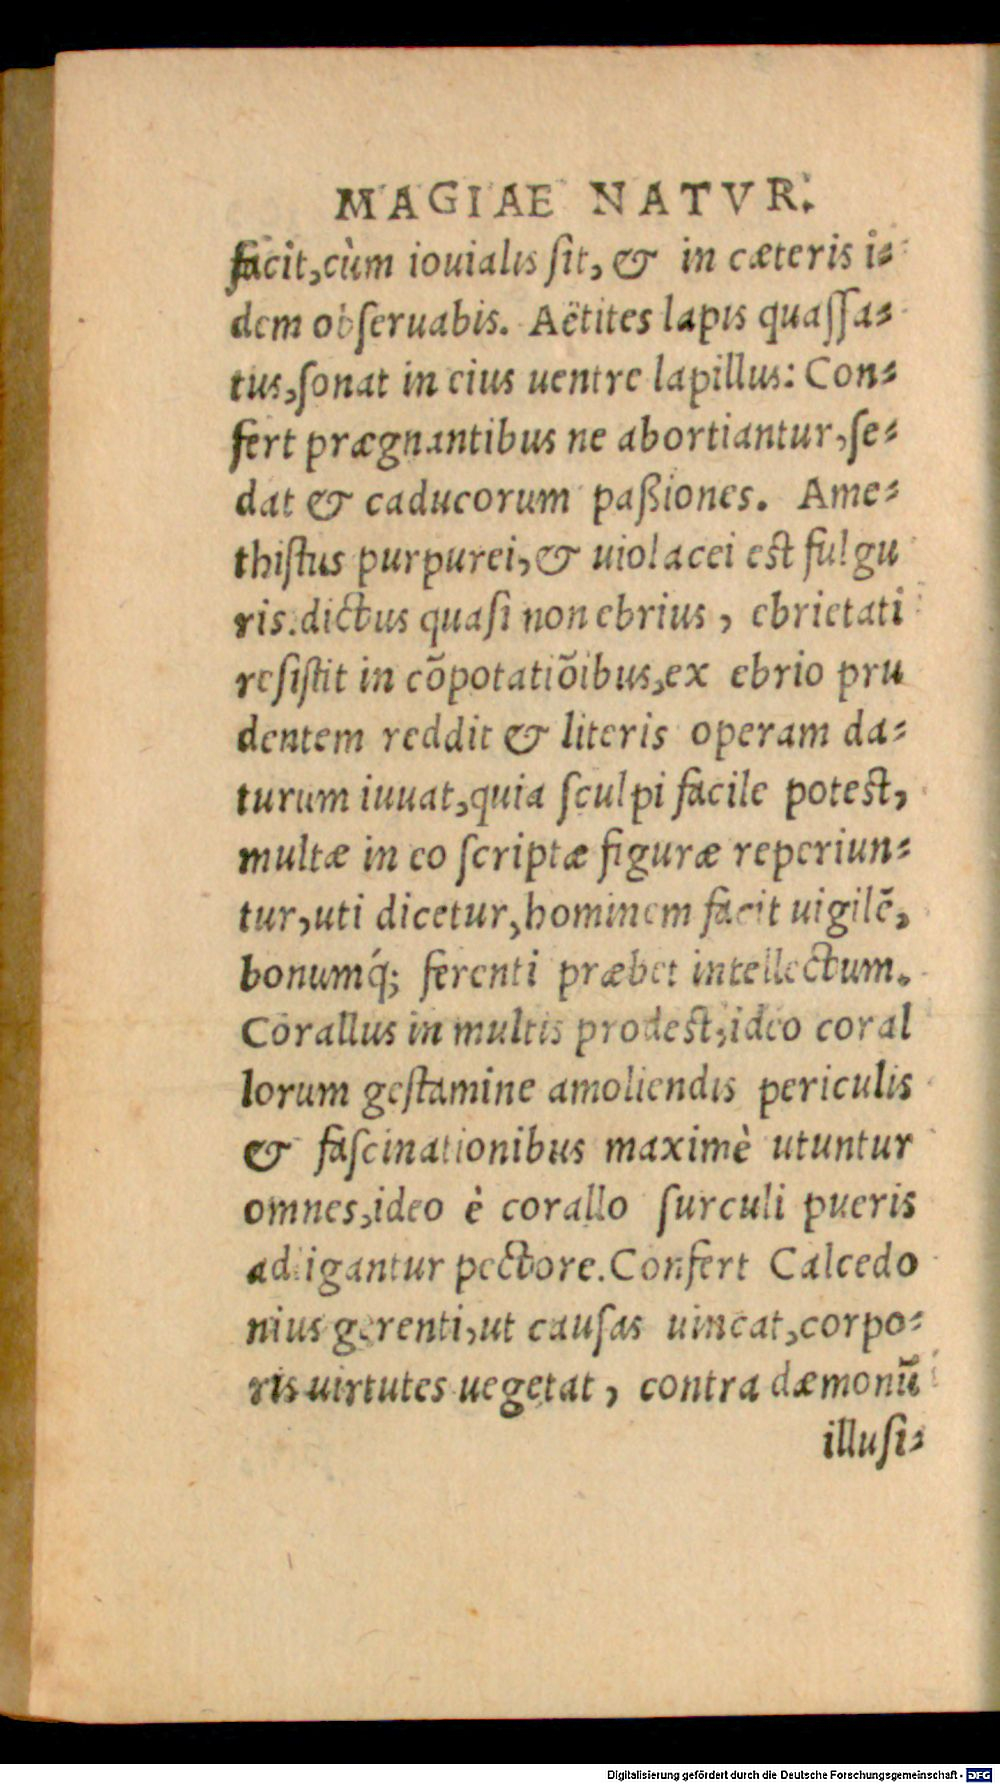 MAGIAE NATVR.
facit, cùm iouialis ſit, & in cæteris i-
dem obſeruabis. Aëtites lapis quaſſa-
tus, ſonat in eius uentre lapillus: Con-
fert prægnantibus ne abortiantur, ſe-
dat & caducorum paßiones. Ame-
thiſtus purpurei, & uiolacei eſt fulgu
ris. dictus quaſi non ebrius, ebrietati
reſiſtit in cõpotatiõibus, ex ebrio pru
dentem reddit & literis operam da-
turum iuuat, quia ſculpi facile poteſt,
multæ in eo ſcriptæ figuræ reperiun-
tur, uti dicetur, hominem facit uigilẽ,
bonumq́; ferenti præbet intellectum.
Corallus in multis prodeſt, ideo coral
lorum geſtamine amoliendis periculis
& faſcinationibus maximè utuntur
omnes, ideo è corallo ſurculi pueris
adligantur pectore. Confert Calcedo
nius gerenti, ut cauſas uincat, corpo-
ris uirtutes uegetat, contra dæmonũ
illuſi-
Digitalisierung gefördert durch die Deutsche Forschungsgemeinschaft - DFG